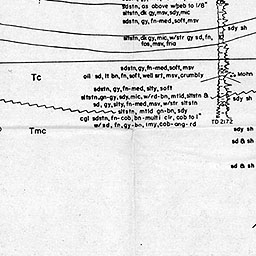 sdstn, as above w/peb to 1/8"
sltstn, dk gy, msv, sdy, mic
sdstn, gy, fn-med, soft, msv
sdy sh
sltstn, dk gy, mic, w/str gy sd, fn,
fos, msv, fria
sdstn, gy, fn-med, soft, msv
Tc
oil sd, lt bn, fn, soft, well srt, msv, crumbly
Mohn
sdstn, gy, fn-med, slty, soft
sltstn, gn-gy, sdy, mic, w/rd-bn, mtld, sltstn &
sd, gy, slty, fn-med, msv, w/str sltstn
sdy sh
sltstn, mtld gn-bn, sdy
cgl sdstn, fn-cob, bn-multi clr, cob to 1"
TD 2172
w/sd, fn, gy-bn, lmy, cob-ang-rd
Tmc
sdy sh
sd & sh
sd & sh